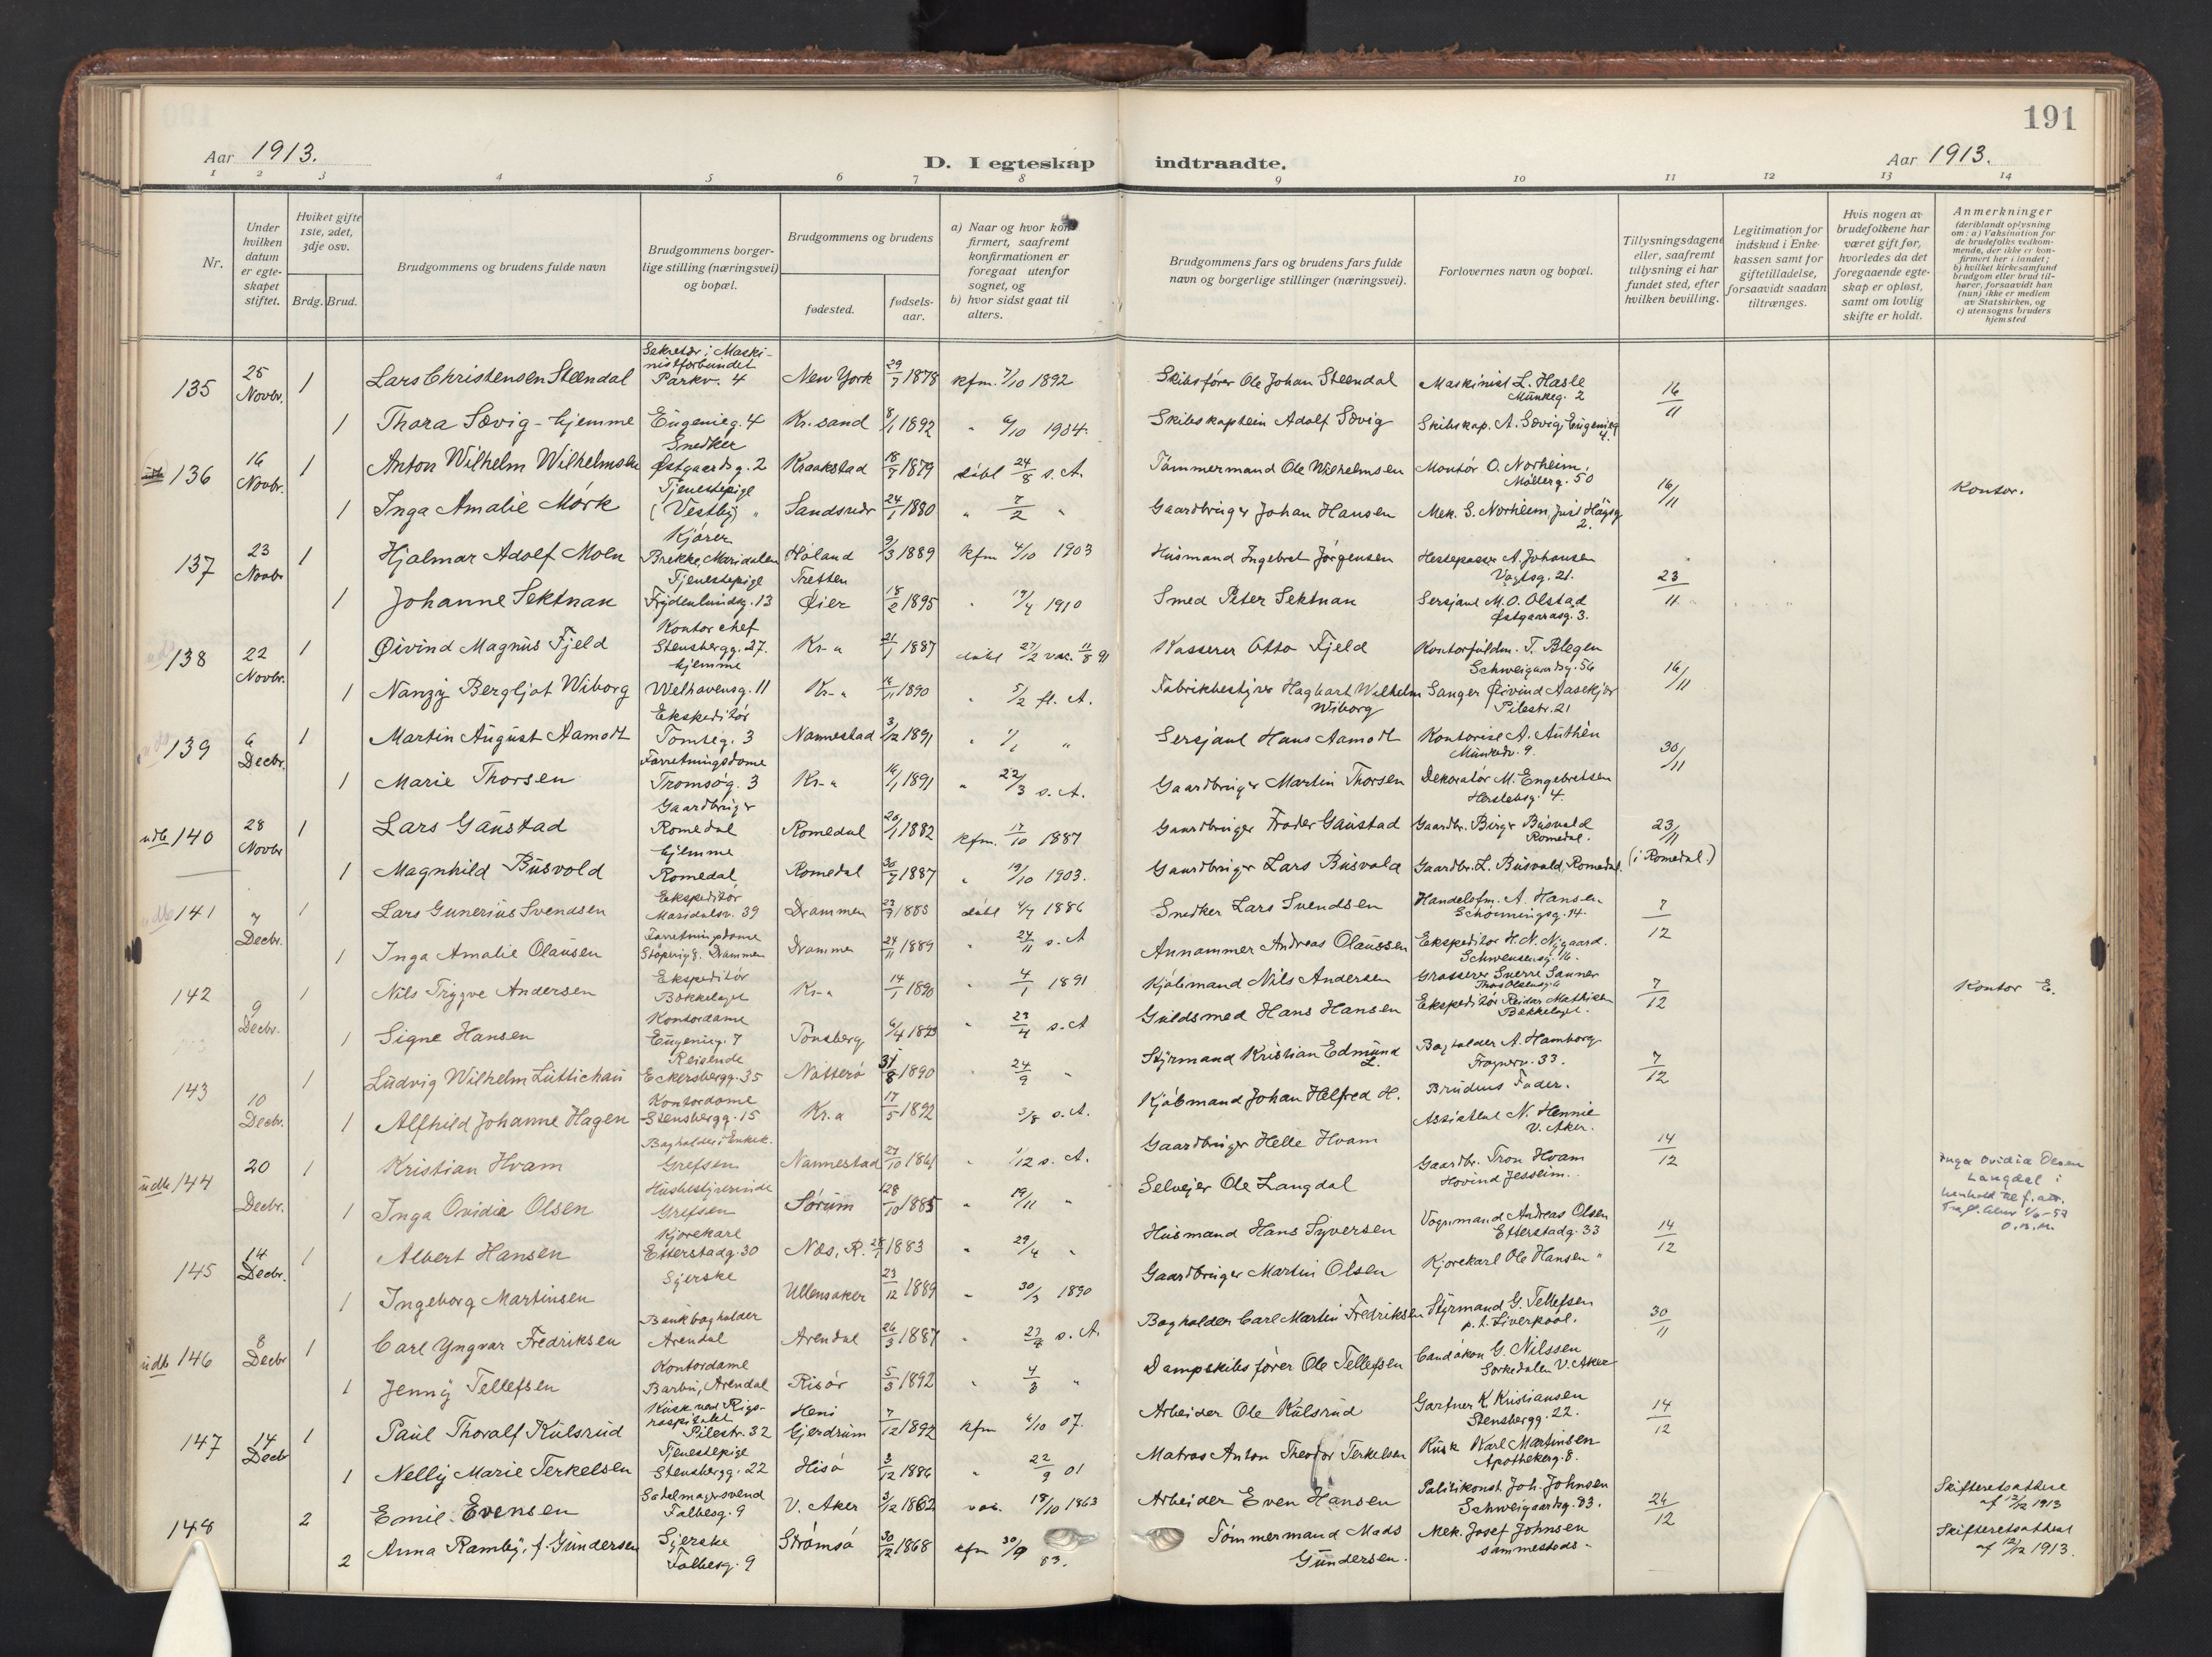 191
Aar 1913.
D. I egteskap indtraadte.
Aar 1913.
1 2 3 4 5 6 7 8 9 10 11 12 13 14
Nr.
Under hvilken datum er egte-skapet stiftet.
Hviket gifte 1ste, 2det, 3dje osv.
Brdg. Brud.
Brudgommens og brudens fulde navn
Brudgommens borger-lige stilling (næringsvei) og bopæl.
Brudgommens og brudens
fødested.
fødsels-aar.
a) Naar og hvor kon-firmert, saafremt konfirmationen er foregaat utenfor sognet, og
b) hvor sidst gaat til alters.
Brudgommens fars og brudens fars fulde navn og borgerlige stillinger (næringsvei).
Forlovernes navn og bopæl.
Tillysningsdagene eller, saafremt tillysning ei har fundet sted, efter hvilken bevilling.
Legitimation for indskud i Enke-kassen samt for giftetilladelse, forsaavidt saadan tiltrænges.
Hvis nogen av brudefolkene har været gift før, hvorledes da det foregaaende egte-skap er opløst, samt om lovlig skifte er holdt.
Anmerkninger (deriblandt oplysning om: a) Vaksination for de brudefolks vedkom-mende, der ikke er kon-firmert her i landet; b) hvilket kirkesamfund brudgom eller brud til-hører, forsaavidt han (hun) ikke er medlem av Statskirken, og c) utensogns bruders hjemsted
135 25 Novbr. 1 Lars Christensen Steendal Sekretær i Maski-nistforbundet Parkv. 4 New York 29/7 1878 kfm. 7/10 1892 Skibsfører Ole Johan Steendal Maskinist L. Hasle Munkeg. 2 16/11
1 Thora Sævig - hjemme Eugenieg. 4 Kr.sand 8/1 1892 " 6/10 1904. Skibskaptein Adolf Sævig Skibskap. A. Sævig, Eugenieg 4.
136 16 Novbr. 1 Anton Wilhelm Wilhelmsen Snedker Østgaardsg. 2 Kraakstad 18/7 1879 dobl 24/8 s. A. Tømmermand Ole Wilhelmsen Montør O. Norheim, Møllerg. 50 16/11 Kontor.
1 Inga Amalie Mørk Tjenestepige (Vestby) " Sandsvær 24/1 1880 " 7/2 " Gaardbruger Johan Hansen Mek. G. Norheim, 2.
137 23 Novbr 1 Hjalmar Adolf Moen Kjører Brekke, Maridalen Høland 9/3 1889 kfm 4/10 1903 Husmand Ingebret Jørgensen Hestepasser A. Johansen Vogtsg. 21. 23/11
1 Johanne Sektnan Tjenestepige Frydenlundsg. 13 Tretten Øier 18/2 1895 " 17/4 1910 Smed Peter Sektnan Sersjant M. O. Olstad Østgaardsg. 3.
138 22 Novbr. 1 Øivind Magnus Fjeld Kontorchef Stensbergg. 27. Kr-a 21/1 1887 dobl 27/2 vac. 11/8 91 Kasserer Otto Fjeld Kontorfuldm. T. Blegen Schweigaardsg. 56 16/11
1 Nanzy Bergljot Wiborg hjemme Welhavensg. 11 Kr-a 16/11 1890 " 5/2 fl. A. Fabrikbestyrer Hagbart Wilhelm Wiborg Sanger Øivind Aasekjær Pilestr. 21
139 6 Decbr. 1 Martin August Aamodt Ekspeditør Tomteg. 3 Nannestad 3/12 1891 " 1/1 " Sersjant Hans Aamodt Kontorist A. Authén Munkedv. 9. 30/11
1 Marie Thorsen Forretningsdame Tromsøg. 3 Kr-a 16/1 1891 " 22/3 s. A. Gaardbruger Martin Thorsen Dekoratør M. Engebretsen Herslebsg. 4.
udb 140 28 Novbr 1 Lars Gaustad Gaardbruger Romedal Romedal 20/1 1882 kfm. 17/10 1887 Gaardbruger Gaustad Gaardbr. Birger Busvold Romedal. 23/11
1 Magnhild Busvold hjemme Romedal Romedal 30/7 1887 " 19/10 1903. Gaardbruger Lars Busvold Gaardbr. L. Busvold, Romedal. (i Romedal.)
udb 141 7 Decbr. 1 Lars Gunerius Svendsen Ekspeditør Maridalsv. 39 Drammen 1885 dobl 4/7 1886 Snedker Lars Svendsen Handelsfm. A. Hansen Schønningsg. 14. 7/12
1 Inga Amalie Olausen Forretningsdame Drammen Drammen 24/11 1889 " 24/11 s. A Annammer Andreas Olaussen Ekspeditør H. N. Nygaard. Schwensensg. 16.
142 9 Decbr. 1 Nils Trygve Andersen Ekspeditør Bækkelaget Kr-a 14/1 1890 " 4/1 1891 Kjøbmand Nils Andersen Grosserer Sverre Sanner Thos. Olsensg. 7/12 Kontor E.
1 Signe Hansen Kontordame Eugenieg. 7 Tønsberg 6/4 1893 " 23/4 s. A Guldsmed Hans Hansen Ekspeditør Reidar Mathisen Bækkelaget.
143 10 Decbr. 1 Ludvig Wilhelm Lüttichau Reisende Eckersbergg. 35 Nøtterø 31/8 1890 " 24/9 " Styrmand Kristian Edmund L. Bogholder A. Hamborg Frognerv. 33. 7/12
1 Alfhild Johanne Hagen Kontordame Stensbergg. 15 Kr.a 17/5 1892 3/8 s. A. Kjøbmand Johan Helfred H. Brudens Fader.
udb 144 20 Decbr. 1 Kristian Hvam Bogholder i Enkek. Grefsen Nannestad 27/10 1861 " 1/12 s. A. Gaardbruger Helle Hvam Assistent N. Hennie V. Aker. 14/12
1 Inga Ovidie Olsen Husbestyrerinde Grefsen Sørum 28/10 1885 " 19/11 " Selveier Ole Langdal Gaardbr. Tron Hvam Hovind Jessheim. Inga Ovidia Olsen Langdal i henhold til
145 14 Decbr. 1 Albert Hansen Kjørekarl Etterstadg. 30 Næs, R. 28/7 1883 " 29/4 " Husmand Hans Syversen Vognmand Andreas Olsen Etterstadg. 33 14/12
1 Ingeborg Martinsen Syerske Ullensaker 23/12 1889 " 30/3 1890 Gaardbruger Martin Olsen Kjørekarl Ole Hansen "
udb 146 8 Decbr 1 Carl Yngvar Fredriksen Bankbogholder Arendal Arendal 26/3 1887 " s. A. Bogholder Carl Martin Fredriksen Styrmand G. Tellefsen p. t. Liverpool. 30/11
1 Jenny Tellefsen Kontordame Barbu, Arendal Risør 5/3 1892 " 4/3 " Dampskibsfører Ole Tellefsen Cand økon G. Nilssen Sørkedalen V. Aker
147 14 Decbr 1 Paul Thoralf Kulsrud Kusk ved Rigs-hospitalet Pilestr. 32 Heni Gjerdrum 7/12 1892 kfm 6/10 07. Arbeider Ole Kulsrud Gartner K Kristiansen Stensbergg. 22. 14/12
1 Nelly Marie Terkelsen Tjenestepige Stensbergg. 22 Hisø 3/12 1886 " 22/9 01 Matros Anton Theodor Terkelsen Kusk Karl Martinsen Apothekerg. 8.
148 2 Emil Evensen Sadelmagersvend Falbesg. 9 V. Aker 3/12 1862 vac. 18/10 1863 Arbeider Even Hansen Politikonst. Joh. Johnsen Schweigaardsg. 83. 24/12 Skifteretsattest af 12/12 1913
2 Anna Ramby, f. Gundersen Syerske Falbesg. 9 Strømsø 30/12 1868 kfm 30/9 83. Tømmermand Mads Gundersen. Mek. Josef Johnsen sammesteds. Skifteretsattest af 12/12 1913.